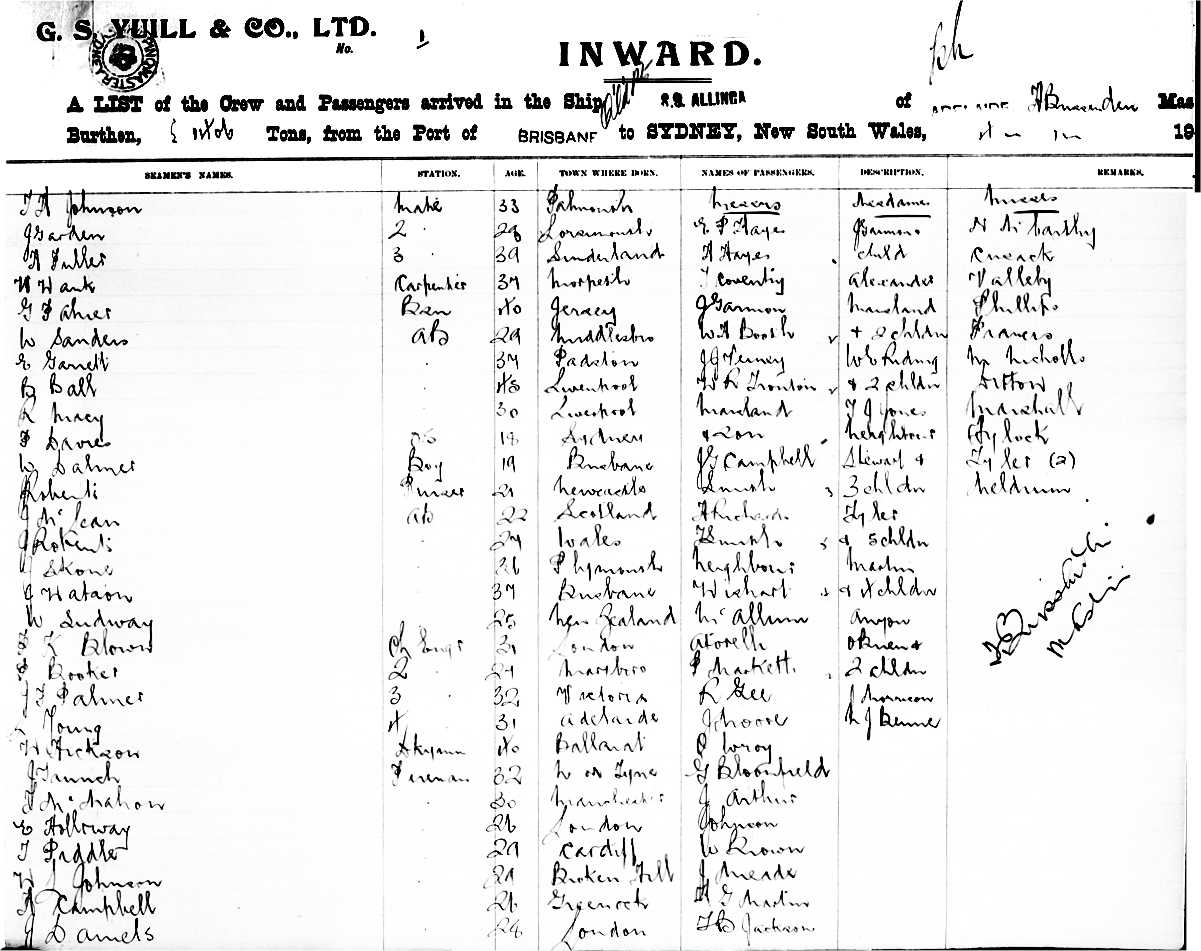 G. S. YUILL & CO., LTD.
No. 1
INWARD.
A LIST of the Crew and Passengers arrived in the Ship S.S. ALLINGA of ADELAIDE Mas
Burthen, Tons, from the Port of BRISBANE to SYDNEY, New South Wales, 19
SEAMEN'S NAMES. STATION. AGE. TOWN WHERE BORN. NAMES OF PASSENGERS. DESCRIPTION. REMARKS.
Johnson Mate 33 Falmouth Messrs Mesdames Misses
J Garden 2 28 E P Hayes J Garmon McCarthy
A Fuller 3 39 Sunderland A Hayes child Cusack
Carpenter 37 Morpeth T Coventry Alexander Valleby
G Palmer 40 Jersey J Garmon Marsland Phillips
W Sanders AB 29 Middlesbro W A Booth & 2 chldn Francis
E Garrett 37 Padston Nicholls
B Ball 48 Liverpool Tronton & 2 chldn Sitton
R Macy 30 Liverpool Marsland T J Jones Marshall
F Davies OS 18 Sydney & son Neighbour
W Palmer Boy 19 Brisbane J G Campbell Stewart & Tyler (2)
J Roberts Purser 21 Newcastle Smith 3 chldn Meldrum
J McLean AB 22 Scotland A Richards Tyler
J Roberts 27 Wales Smith & 5 chldn
J Skone 26 Plymouth Neighbour Martin
J Watson 37 Brisbane Wishart & 4 chldn
W Ludway 25 New Zealand McAllum Anyon
K Blown Ch Engr 31 London A Torelli O'Brien &
Booker 2 27 Marsboro P Hackett 2 chldn
J T Palmer 3 32 Victoria R Gee J Morrison
Young 4 31 Adelaide J Moore
Hickson Dkyman 40 Ballarat P Wroy
J Taunch Fireman 32 N on Tyne G Bloomfield
McMahon 30 Manchester J Arthur
E Holloway 26 London Johnson
T Piddler 29 Cardiff W Brown
Johnson 29 Broken Hill J Meade
A Campbell 26 Greenock A G Martin
J Daniels 28 London Jackson